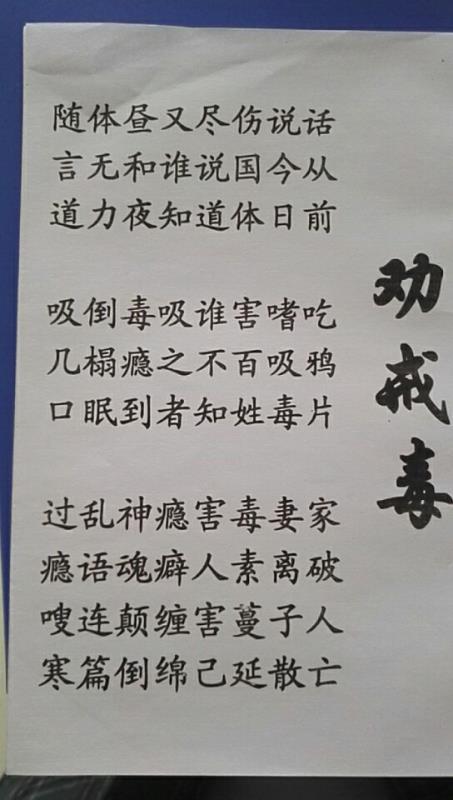 劝戒毒
话从前 吃鸦片 家破人亡
说今日 嗜吸毒 妻离子散
伤国体 害百姓 毒素蔓延
尽说道 谁不知 害人害己
又谁知 吸之者 瘾癖缠绵
昼和夜 毒瘾到 神魂颠倒
体无力 倒榻眠 乱语连篇
随言道 吸几口 过瘾嗖寒